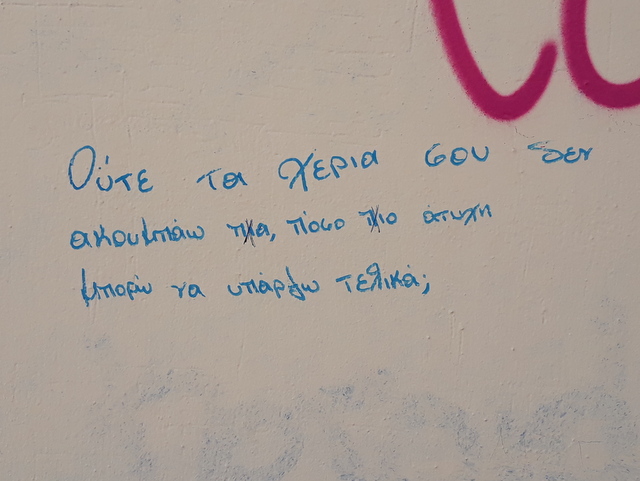 Ούτε τα χέρια σου δεν
ακουμπάω πια, πόσο πιο άτυχη
μπορώ να υπάρξω τελικά;